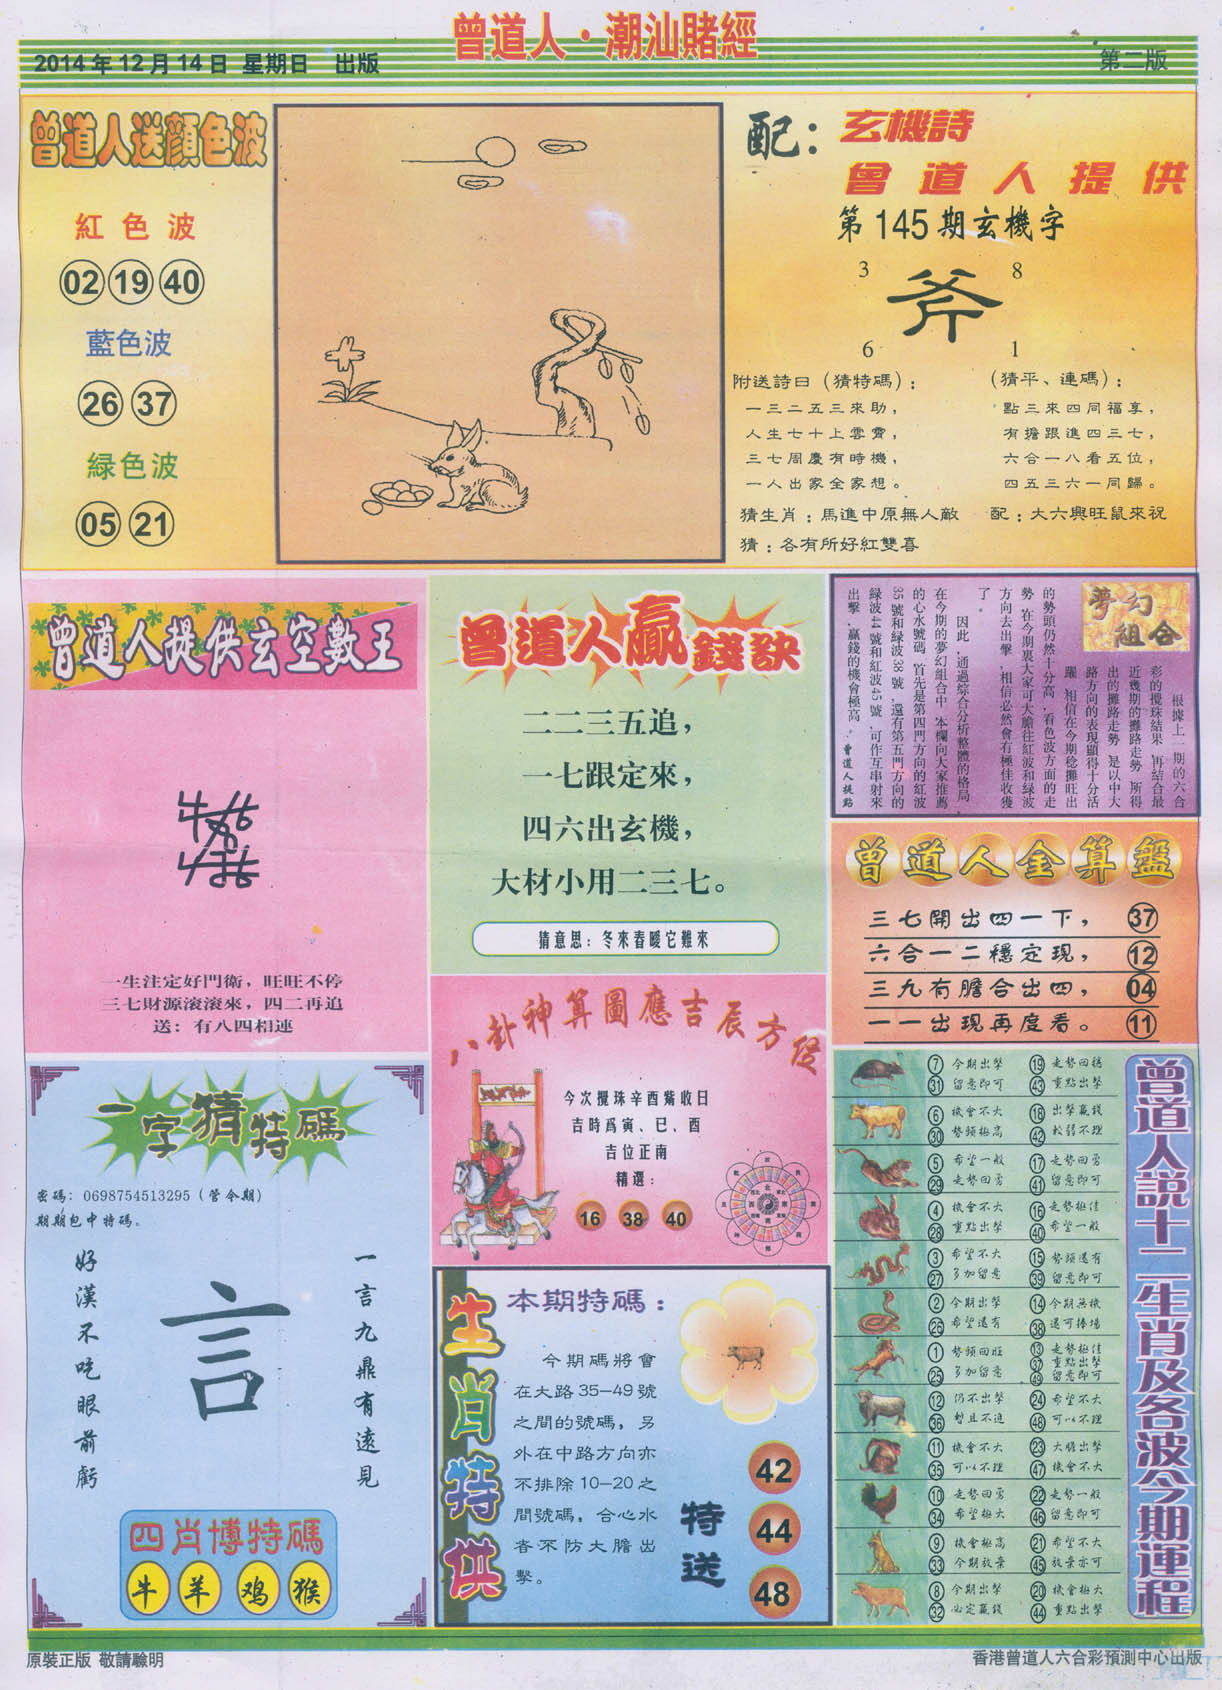 曾道人·潮汕賭經
2014年12月14日 星期日 出版
第二版
曾道人送顏色波
紅色波
02 19 40
藍色波
26 37
緑色波
05 21
配：玄機詩
曾道人提供
第145期玄機字
3 8
斧
6 1
附送詩曰（猜特碼）：
一三二五三來助，
人生七十上雲霄，
三七周慶有時機，
一人出家全家想。
（猜平、連碼）：
點三來四同福享，
有擔跟進四三七，
六合一八看五位，
四五三六一同歸。
猜生肖：馬進中原無人敵
配：大六興旺鼠來祝
猜：各有所好紅雙喜
曾道人提供玄空數王
一生注定好門衛，旺旺不停
三七財源滚滚來，四二再追
送：有八四相連
曾道人贏錢訣
二二三五追，
一七跟定來，
四六出玄機，
大材小用二三七。
猜意思：冬來春暖它難來
夢幻組合
根據上一期的六合
彩的攪珠結果，再結合最
近幾期的攤路走勢，所得
出的攤路走勢，是以中大
路方向的表現顯得十分活
躍，相信在今期稔攤旺出
的勢頭仍然十分高，看色波方面的走
勢，在今期裏大家可大膽往紅波和緑波
方向去出擊，相信必然會有極佳收獲
了。
因此，通過綜合分析整體的格局，
在今期的夢幻組合中，本欄向大家推薦
的心水號碼，首先是第四門方向的紅波
35號和緑波38號，還有第五門方向的
緑波44號和紅波45號，可作互串射來
出擊，贏錢的機會極高。
曾道人提點
曾道人金算盤
三七開出四一下， 37
六合一二穩定現， 12
三九有膽合出四， 04
一一出現再度看。 11
八卦神算圖應吉辰方位
今次攪珠辛酉觜收日
吉時爲寅、巳、酉
吉位正南
精選：
16 38 40
一字猜特碼
密碼：0698754513295（管令期）
期期包中特碼。
一言九鼎有遠見
言
好漢不吃眼前虧
四肖博特碼
牛 羊 鸡 猴
生肖特供
本期特碼：
今期碼將會
在大路35—49號
之間的號碼，另
外在中路方向亦
不排除10—20之
間號碼，合心水
者不防大膽出
擊。
特送
42
44
48
曾道人説十二生肖及各波今期運程
7 今期出擊 19 走勢回穩
31 留意即可 43 重點出擊
6 機會不大 18 出擊贏錢
30 勢頭極高 42 較弱不理
5 希望一般 17 走勢回勇
29 走勢回勇 41 留意即可
4 機會不大 16 走勢極佳
28 重點出擊 40 希望一般
3 希望不大 15 勢頭還有
27 多加留意 39 留意即可
2 今期出擊 14 今期無機
26 希望還有 38 還可捧場
1 勢頭回旺 13 走勢極佳
37 重點出擊
25 多加留意 49 留意即可
12 仍不出擊 24 希望不大
36 暫且不追 48 可以不理
11 機會不大 23 大膽出擊
35 可以不理 47 機會不大
10 走勢回勇 22 走勢一般
34 希望極大 46 留意即可
9 機會極高 21 希望不大
33 今期放棄 45 放棄亦可
8 今期出擊 20 機會極大
32 必定贏錢 44 重點出擊
原裝正版 敬請聰明
香港曾道人六合彩預測中心出版